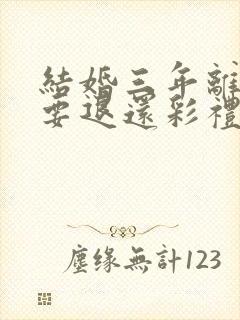 結婚三年離
要退還彩禮
塵缘無計123